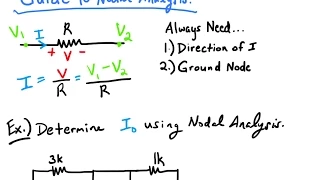 Guide to Nodal Analysis.
V₁ I R V₂
+ V -
I = V/R = V₁-V₂/R
Always Need...
1.) Direction of I
2.) Ground Node
Ex.) Determine I₀ using Nodal Analysis.
3k 1k